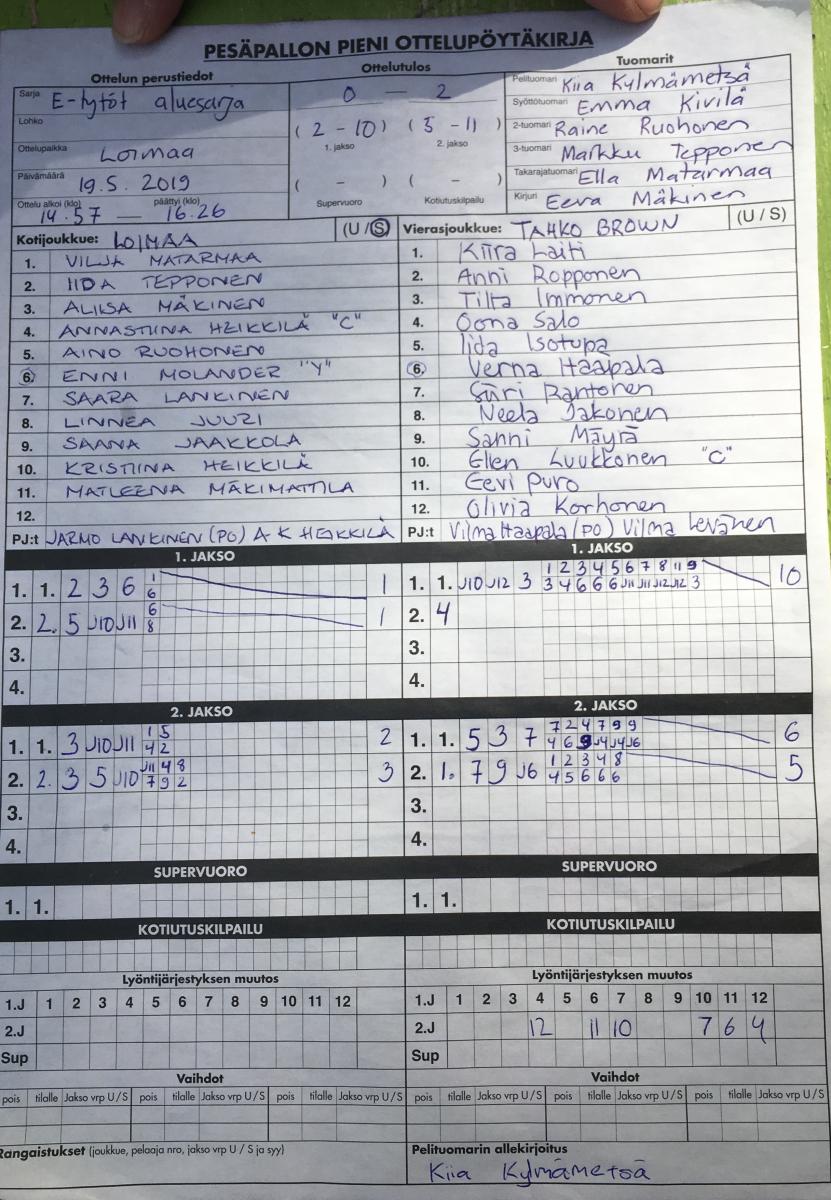 PESÄPALLON PIENI OTTELUPÖYTÄKIRJA
Ottelun perustiedot Ottelutulos Tuomarit
Sarja E-tytöt aluesarja
Lohko
Ottelupaikka Loimaa
Päivämäärä 19.5. 2019
Ottelu alkoi (klo) päättyi (klo)
14.57 — 16.26
0 — 2
( 2 - 10 ) ( 5 - 11 )
1. jakso 2. jakso
( - ) ( - )
Supervuoro Kotiutuskilpailu
Pelituomari Kiia Kylmämetsä
Syöttötuomari Emma Kivilä
2-tuomari Raine Ruohonen
3-tuomari Markku Tepponen
Takarajatuomari Ella Matarmaa
Kirjuri Eeva Mäkinen
Kotijoukkue: LOIMAA (U / S)
1. VILJA MATARMAA
2. IIDA TEPPONEN
3. ALIISA MÄKINEN
4. ANNASTIINA HEIKKILÄ "C"
5. AINO RUOHONEN
6. ENNI MOLANDER "Y"
7. SAARA LANKINEN
8. LINNEA JUUZI
9. SAANA JAAKKOLA
10. KRISTIINA HEIKKILÄ
11. MATLEENA MÄKIMATTILA
12.
PJ:t JARMO LANKINEN (PO) A K HEIKKILÄ
Vierasjoukkue: TAHKO BROWN (U / S)
1. Kiira Laiti
2. Anni Ropponen
3. Tilta Immonen
4. Oona Salo
5. Iida Isotupa
6. Verna Haapala
7. Siiri Rantonen
8. Neela Jakonen
9. Sanni Mäyrä
10. Ellen Luukkonen "C"
11. Eevi Puro
12. Olivia Korhonen
PJ:t Vilma Haapala (PO) Vilma Levänen
1. JAKSO
1 
1. 1. 2 3 6 6 1
6
2. 2. 5 J10 J11 8 1
3.
4.
1. JAKSO
1 2 3 4 5 6 7 8 11 9
1. 1. J10 J12 3 3 4 6 6 6 J11 J11 J12 J12 3 10
2. 4
3.
4.
2. JAKSO
1 5
1. 1. 3 J10 J11 4 2 2
J11 4 8
2. 2. 3 5 J10 7 9 2 3
3.
4.
2. JAKSO
7 2 4 7 9 9
1. 1. 5 3 7 4 6 9 J4 J4 J6 6
1 2 3 4 8
2. 1. 7 9 J6 4 5 6 6 6 5
3.
4.
SUPERVUORO
1. 1.
SUPERVUORO
1. 1.
KOTIUTUSKILPAILU
KOTIUTUSKILPAILU
Lyöntijärjestyksen muutos
1.J 1 2 3 4 5 6 7 8 9 10 11 12
2.J
Sup
Lyöntijärjestyksen muutos
1.J 1 2 3 4 5 6 7 8 9 10 11 12
2.J 12 11 10 7 6 4
Sup
Vaihdot
pois tilalle Jakso vrp U / S pois tilalle Jakso vrp U / S pois tilalle Jakso vrp U / S
Vaihdot
pois tilalle Jakso vrp U / S pois tilalle Jakso vrp U / S pois tilalle Jakso vrp U / S
Rangaistukset (joukkue, pelaaja nro, jakso vrp U / S ja syy)
Pelituomarin allekirjoitus
Kiia Kylmämetsä